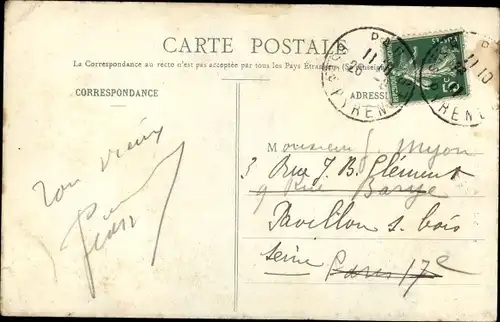 CARTE POSTALE
La Correspondance au recto n'est pas acceptée par tous les Pays Étrangers (Se
CORRESPONDANCE
ADRESSE
PAU
PYRENE
5c
Ton vieux
Jean
Monsieur J. Myon
3 Rue J. B. Clément
9 Rue Barye
Pavillon s. bois
Seine
Paris 17e